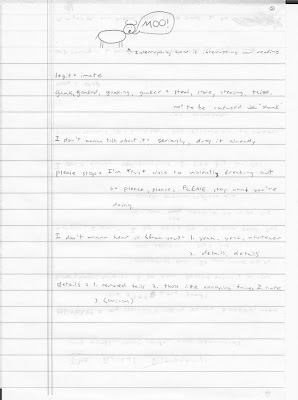 MOO!
* Interrupting cow is interrupting your reading
legit = mate
Gank, ganked, ganking, ganker = steal, stole, stealing, thief,
not to be confused w/ "skank"
I don't wanna talk about it: seriously, drop it already
please stop = I'm this close to violently freaking out
so please, please, PLEASE stop what you're
doing.
I don't wanna hear it (from you): 1. yeah, yeah, whatever
2. details, details
details = 1. removed tails 2. those little annoying things I hate
3. (unicorn)